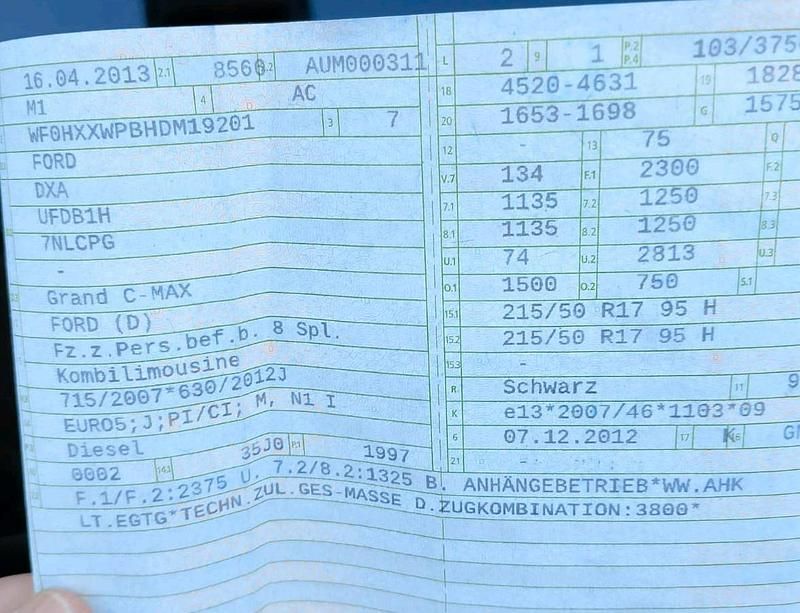 16.04.2013 2.1 8566 2.2 AUM000311
M1 4 AC
WF0HXXWPBHDM19201 3 7
FORD
DXA
UFDB1H
7NLCPG
-
Grand C-MAX
FORD (D)
Fz.z.Pers.bef.b. 8 Spl.
Kombilimousine
715/2007*630/2012J
EURO5;J;PI/CI; M, N1 I
Diesel 35J0 P.1 1997
0002 14.1
L 2 9 1 P.2 P.4 103/375
18 4520-4631 19 1828
20 1653-1698 G 1575
12 - 13 75 Q
V.7 134 F.1 2300 F.2
7.1 1135 7.2 1250 7.3
8.1 1135 8.2 1250 8.3
U.1 74 U.2 2813 U.3
O.1 1500 O.2 750 S.1
15.1 215/50 R17 95 H
15.2 215/50 R17 95 H
15.3 -
R Schwarz 11 9
K e13*2007/46*1103*09
6 07.12.2012 17 K 16
21 -
F.1/F.2:2375 U. 7.2/8.2:1325 B. ANHÄNGEBETRIEB*WW.AHK
LT.EGTG*TECHN.ZUL.GES-MASSE D.ZUGKOMBINATION:3800*